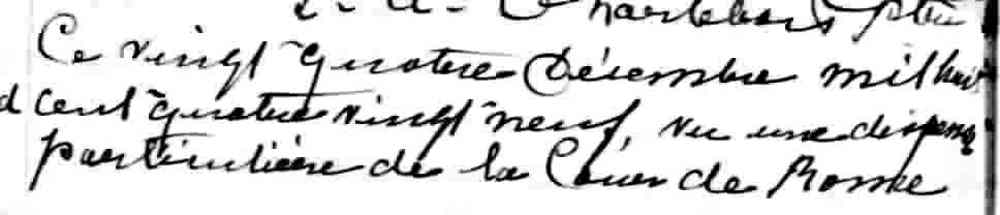 Ce vingt quatre Décembre mil huit
cent quatre vingt neuf, vu une dispense
particulière de la Cour de Rome